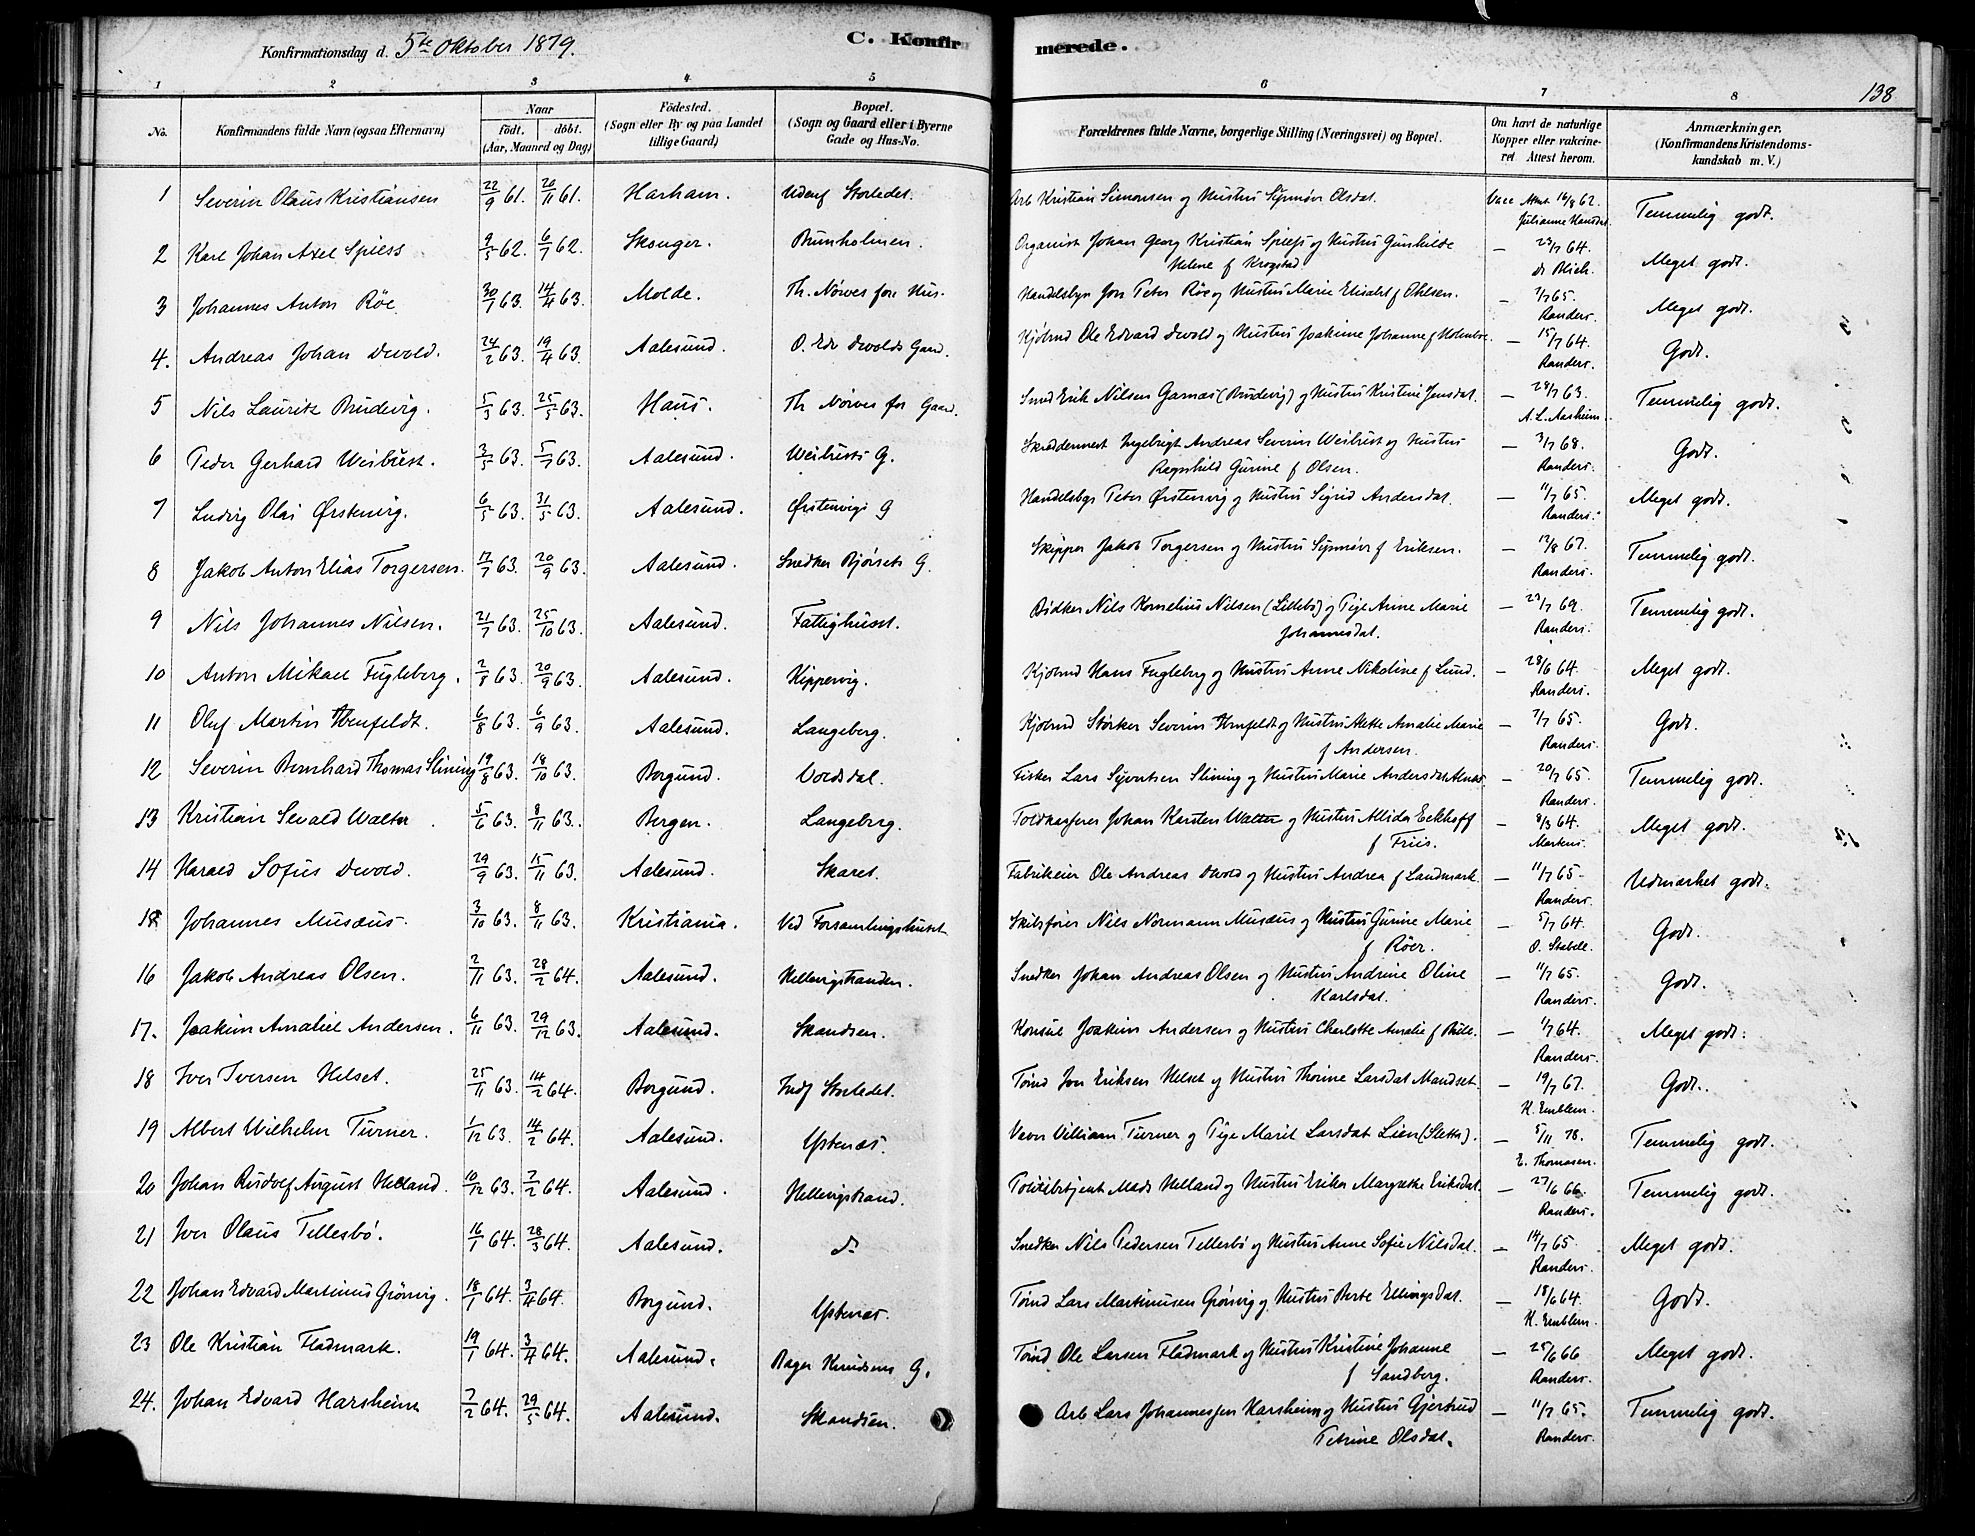 Konfirmationsdag d. 5te Oktober 1879.
C. Konfirmerede.
138
1 2 3 4 5 6 7 8
No. Konfirmandens fulde Navn (ogsaa Efternavn) Naar födt. döbt. (Aar, Maaned og Dag) Födested. (Sogn eller By og paa Landet tillige Gaard) Bopæl. (Sogn og Gaard eller i Byerne Gade og Hus-No. Forældrenes fulde Navne, borgerlige Stilling (Næringsvei) og Bopæl. Om havt de naturlige Kopper eller vakcineret Attest herom. Anmærkninger. (Konfirmandens Kristendomskundskab m. V.)
1 Severin Olaus Kristiansen 22/9 61. 20/11 61. Harham. Udenf Storledet. Arb Kristian Simonsen og Hustru Synnöv Olsdat. Vacc Attest 16/8 62. Temmelig godt.
Julianne Hansdat
2 Karl Johan Axel Spiess 9/5 62. 6/7 62. Skonger. Brunholmen. Organist Johan Georg Kristian Spiess og Hustru Gunhilde — 23/7 64. Meget godt.
Helene f Krogstad. dr Blich.
3 Johannes Anton Röe 30/1 63. 14/4 63. Molde. Th. Nörves fore Hus. Handelsbgr Jon Peter Röe og Hustru Marie Elisabet f Ohlsen. — 7/7 65. Meget godt.
Randers.
4. Andreas Johan Devold. 24/2 63. 19/4 63. Aalesund. O. Edv Devolds Gaard. Kjöbmd Ole Edvard Devold og Hustru Joakime Johanne f Holmboe. — 15/7 64. Godt.
Randers.
5 Nils Lauritz Brudevig. 5/3 63. 25/5 63. Haus. Th Nörves for Gaard. Smed Erik Nilsen Garnæs (Brudevig) og Hustru Kristine Jensdat. — 28/7 63. Temmelig godt.
A. L. Aarheim.
6 Peder Gerhard Weibust. 3/5 63. 5/7 63. Aalesund. Weibusts G. Skræddermest Ingebrigt Andreas Severin Weibust og Hustru — 3/7 68. Godt.
Ragnhild Gurine f Olsen. Randers.
7 Ludvig Olai Ørstenvig. 6/5 63. 31/5 63. Aalesund. Ørstenvigs G Handelsbgr Peter Ørstenvig og Hustru Sigrid Andersdat. — 11/7 65. Meget godt.
Randers.
8 Jakob Anton Elias Torgersen. 17/7 63. 20/9 63. Aalesund. Snedker Bjørsets G. Skipper Jakob Torgersen og Hustru Synnöv f Eriksen. — 12/8 67. Temmelig godt.
Randers.
9 Nils Johannes Nilsen. 21/7 63. 25/10 63. Aalesund. Fattighuset. Bödker Nils Kornelius Nilsen (Lillebö) og Pige Anne Marie — 23/7 69. Temmelig godt.
Johannesdat. Randers.
10 Anton Mikael Fugleberg. 2/8 63. 20/9 63. Aalesund. Kippervig. Kjöbmd Hans Fugleberg og Hustru Anne Nikoline f Lund. — 28/6 64. Meget godt.
Randers.
11 Oluf Martin Honfeldt. 6/8 63. 6/9 63. Aalesund. Langeberg. Kjöbmd Störker Severin Honfeldt og Hustru Mette Amalie Marie — 7/7 65. Godt.
f Andersen. Randers.
12 Severin Bernhard Thomas Slining 19/8 63. 18/10 63. Borgund. Voldsdal. Fisker Lars Sjurtsen Slining og Hustru Marie Andersdat Alnæs — 20/7 65. Temmelig godt.
Randers.
13 Kristian Sevald Walter 5/6 63. 8/11 63. Bergen. Langeberg. Toldkasserer Johan Karsten Walter og Hustru Allida Eckhoff — 8/3 64. Meget godt.
f Friis. Markus.
14 Harald Sofus Devold. 29/9 63. 15/11 63. Aalesund. Skaret. Fabrikeier Ole Andreas Devold og Hustru Andrea f Landmark. — 11/7 65. Udmærket godt.
Randers.
15 Johannes Musæus 3/10 63. 8/11 63. Kristiania. Ved Forsamlingshuset Skibsfører Nils Normann Musæus og Hustru Gurine Marie — 5/7 64. Godt.
f Röer. O. Stabell.
16 Jakob Andreas Olsen. 2/11 63. 28/2 64. Aalesund. Hellevigstranden. Snedker Johan Andreas Olsen og Hustru Andrine Oline — 11/7 65. Godt.
Karlsdat. Randers.
17. Joakim Amaliel Andersen. 6/11 63. 29/12 63. Aalesund. Skandsen. Konsul Joakim Andersen og Hustru Charlotte Amalie f Bull. — 1/7 64. Meget godt.
Randers.
18 Iver Iversen Helset. 25/11 63. 14/2 64. Borgund. Indf Storledet. Tömd Iver Eriksen Helset og Hustru Thorine Larsdat Mandset. — 19/7 67. Godt.
K. Emblem.
19 Albert Wilhelm Turner. 1/12 63. 14/2 64. Aalesund. Ystenæs. Væver William Turner og Pige Marit Larsdat Lien (Sletta). — 5/11 78. Temmelig godt.
E. Thomasen.
20 Johan Rudolf August Helland. 10/12 63. 7/2 64. Aalesund. Hellevigstrand. Politibetjent Mads Helland og Hustru Erika Margrethe Eriksdat. — 27/6 66. Temmelig godt.
Randers.
21 Iver Olaus Tellesbö. 16/1 64. 28/3 64. Aalesund. do Snedker Nils Pedersen Tellesbö og Hustru Anne Sofie Nilsdat. — 14/7 65. Meget godt.
Randers.
22 Johan Edvard Martinus Grönvig. 18/1 64. 3/4 64. Borgund. Ystenæs. Tömd Lars Martinusen Grönvig og Hustru Berte Ellingsdat. — 18/6 64. Godt.
K. Emblem.
23 Ole Kristian Fladmark. 19/1 64. 3/4 64. Aalesund. Bager Knudsens G. Tömd Ole Larsen Fladmark og Hustru Kristine Johanne — 25/6 66 Meget godt.
f Sandberg. Randers.
24. Johan Edvard Harsheim 7/2 64. 29/5 64. Aalesund. Skandsen. Arb Lars Johannessen Harsheim og Hustru Gjertrud — 11/7 65. Temmelig godt.
Petrine Olsdat. Randers.